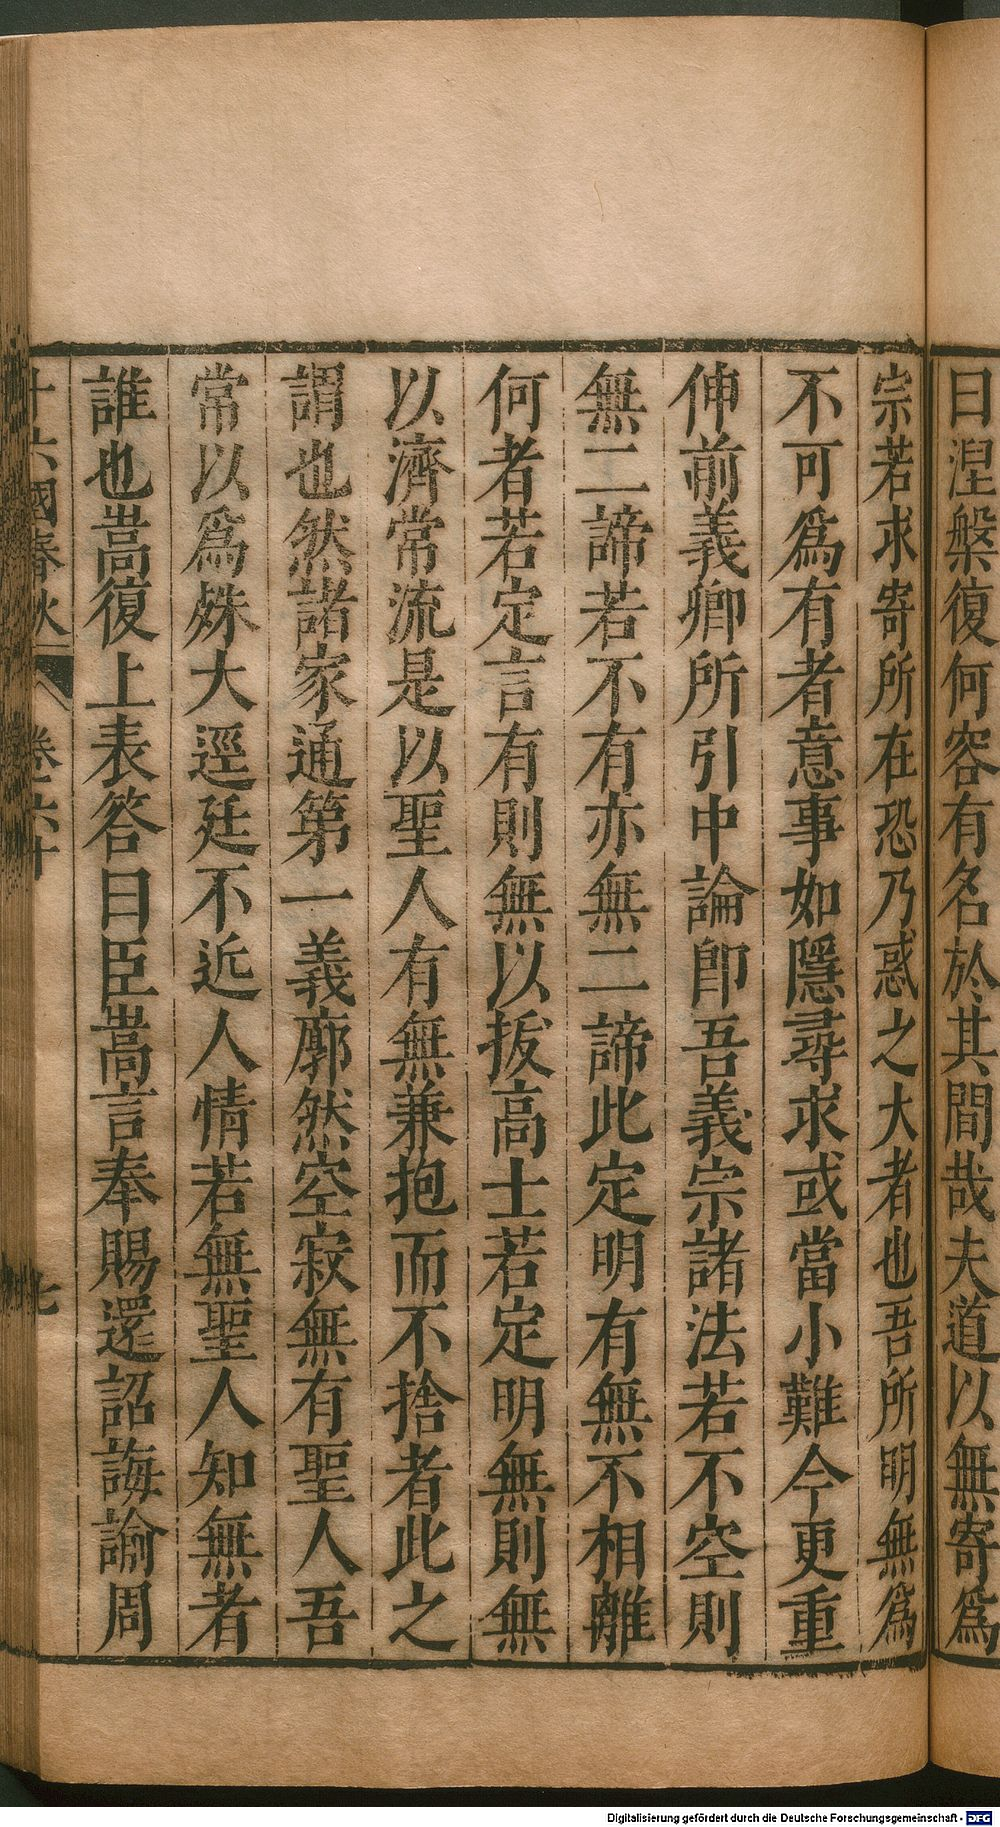 曰涅槃復何容有名於其間哉夫道以無寄爲
宗若求寄所在恐乃惑之大者也吾所明無爲
不可爲有者意事如隱尋求或當小難今更重
伸前義卿所引中論卽吾義宗諸法若不空則
無二諦若不有亦無二諦此定明有無不相離
何者若定言有則無以拔高士若定明無則無
以濟常流是以聖人有無兼抱而不捨者此之
謂也然諸家通第一義廓然空寂無有聖人吾
常以爲殊大逕廷不近人情若無聖人知無者
誰也嵩復上表答曰臣嵩言奉賜還詔誨諭周
十六國春秋 卷六十 七
Digitalisierung gefördert durch die Deutsche Forschungsgemeinschaft - DFG